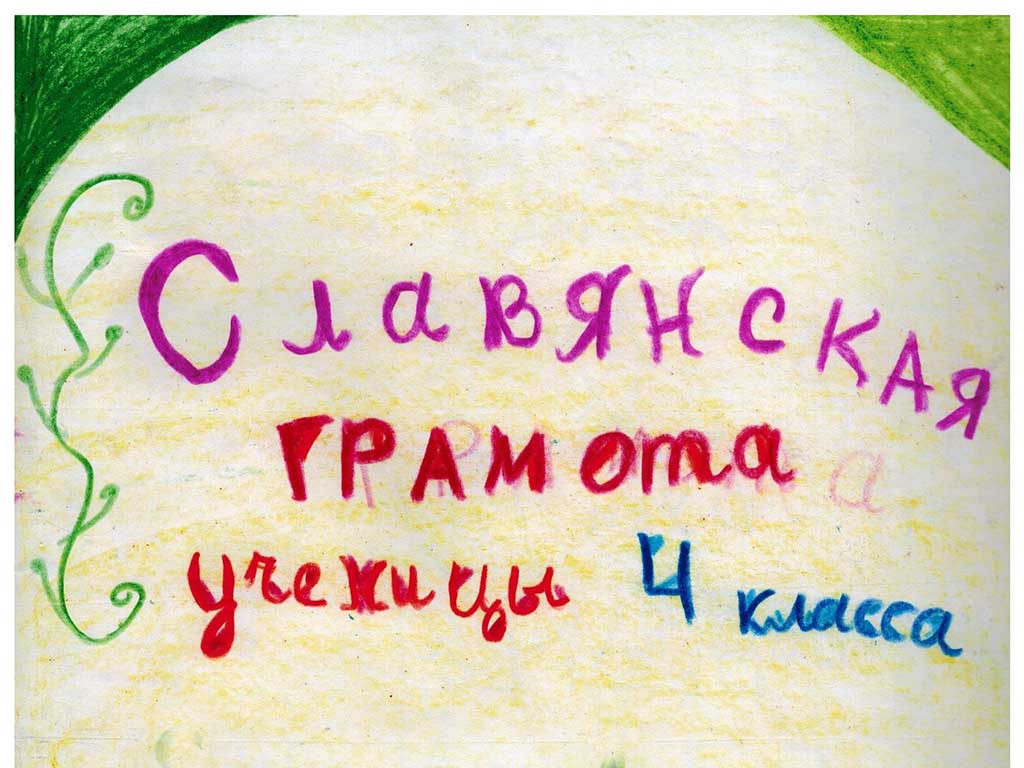 Славянская
грамота
ученицы 4 класса